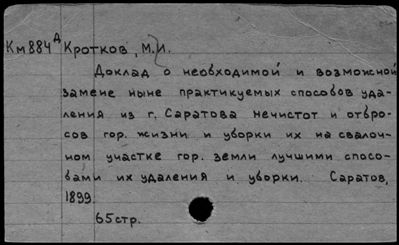 Км884А Кротков, М.И.
Доклад о необходимой и возможной
замене ныне практикуемых способов уда-
ления из г. Саратова нечистот и отбро-
сов гор. жизни и уборки их на свалоч-
ном участке гор. земли лучшими спосо-
бами их удаления и уборки. Саратов,
1899.
65стр.